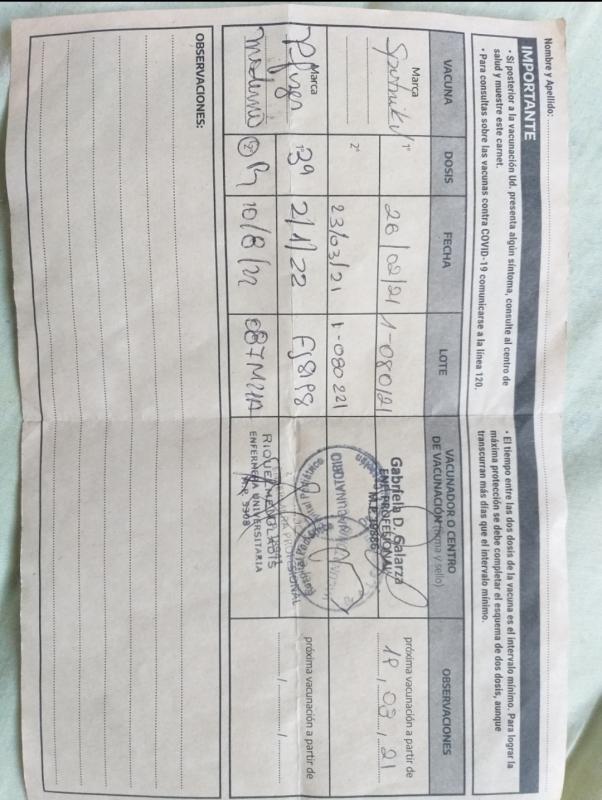 Nombre y Apellido:
IMPORTANTE
• Si posterior a la vacunación Ud. presenta algún síntoma, consulte al centro de
salud y muestre este carnet.
• Para consultas sobre las vacunas contra COVID-19 comunicarse a la línea 120.
• El tiempo entre las dos dosis de la vacuna es el intervalo mínimo. Para lograr la
máxima protección se debe completar el esquema de dos dosis, aunque
transcurran más días que el intervalo mínimo.
VACUNA DOSIS FECHA LOTE VACUNADOR O CENTRO
DE VACUNACIÓN (firma y sello) OBSERVACIONES
Marca 1° 26/02/21 1-080121
Gabriela D. Galarza
ENF. PROFESIONAL
próxima vacunación a partir de
19, 03, 21
2° 23/03/21 1-080221
VACUNATORIO
Marca
Pfizer 1° 3° 2/1/22
PROFESIONAL
próxima vacunación a partir de
/ /
Moderna 2° R 10/8/22
ENFERMERA UNIVERSITARIA
OBSERVACIONES: